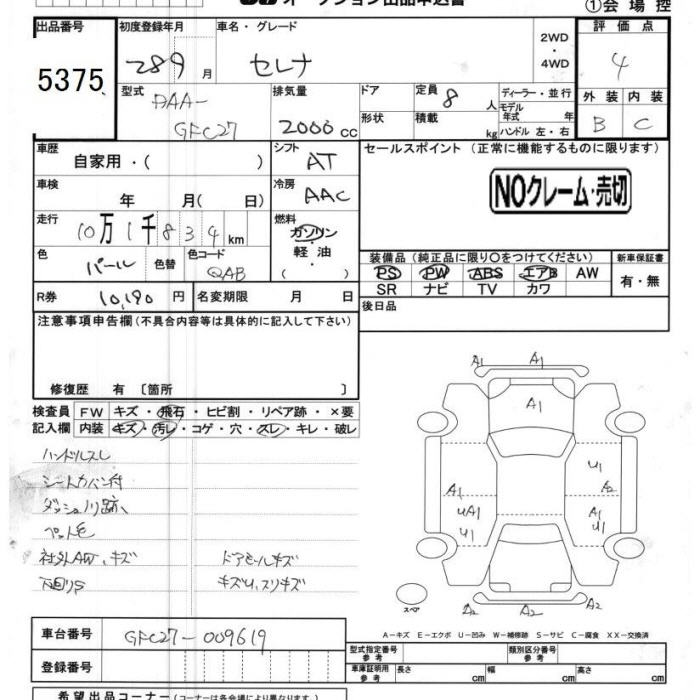 オークション出品申込書
①会場控
出品番号 初度登録年月 車名・グレード 2WD・4WD 評価点
5375 289月 セレナ 4
型式 DAA-GFC27 排気量 2000cc ドア 定員 8人 ディーラー・並行 外装 内装
形状 積載 kg モデル年式 年 ハンドル 左・右 B C
車歴 自家用・( ) シフト AT セールスポイント (正常に機能するものに限ります)
車検 年 月( 日) 冷房 AAC NOクレーム・売切
走行 10万1千834km 燃料 ガソリン・軽油・( )
色 パール 色替 色コード QAB 装備品 (純正品に限り○をつけてください) 新車保証書
PS PW ABS エアB AW 有・無
SR ナビ TV カワ
R券 10,190円 名変期限 月 日 後日品
注意事項申告欄 (不具合内容等は具体的に記入して下さい)
修復歴 有 〔箇所 〕
検査員 FW キズ・飛石・ヒビ割・リペア跡・×要
記入欄 内装 キズ・汚レ・コゲ・穴・スレ・キレ・破レ
ハンドルスレ
シートカバー付
ダッシュノリ跡
ペット毛
社外AW、キズ ドアモールキズ
下回りS キズU、スリキズ
A1 A1
A1
U1
A1 A2
UA1 A1
U1 U1
スペア A2 A2 A2
A-キズ E-エクボ U-凹み W-補修跡 S-サビ C-腐食 XX-交換済
車台番号 GFC27-009619
登録番号
型式指定番号 参考 類別区分番号 参考
車庫証明用 参考 長さ cm 幅 cm 高さ cm
希望出品コーナー (コーナーは各会場により異なります。)